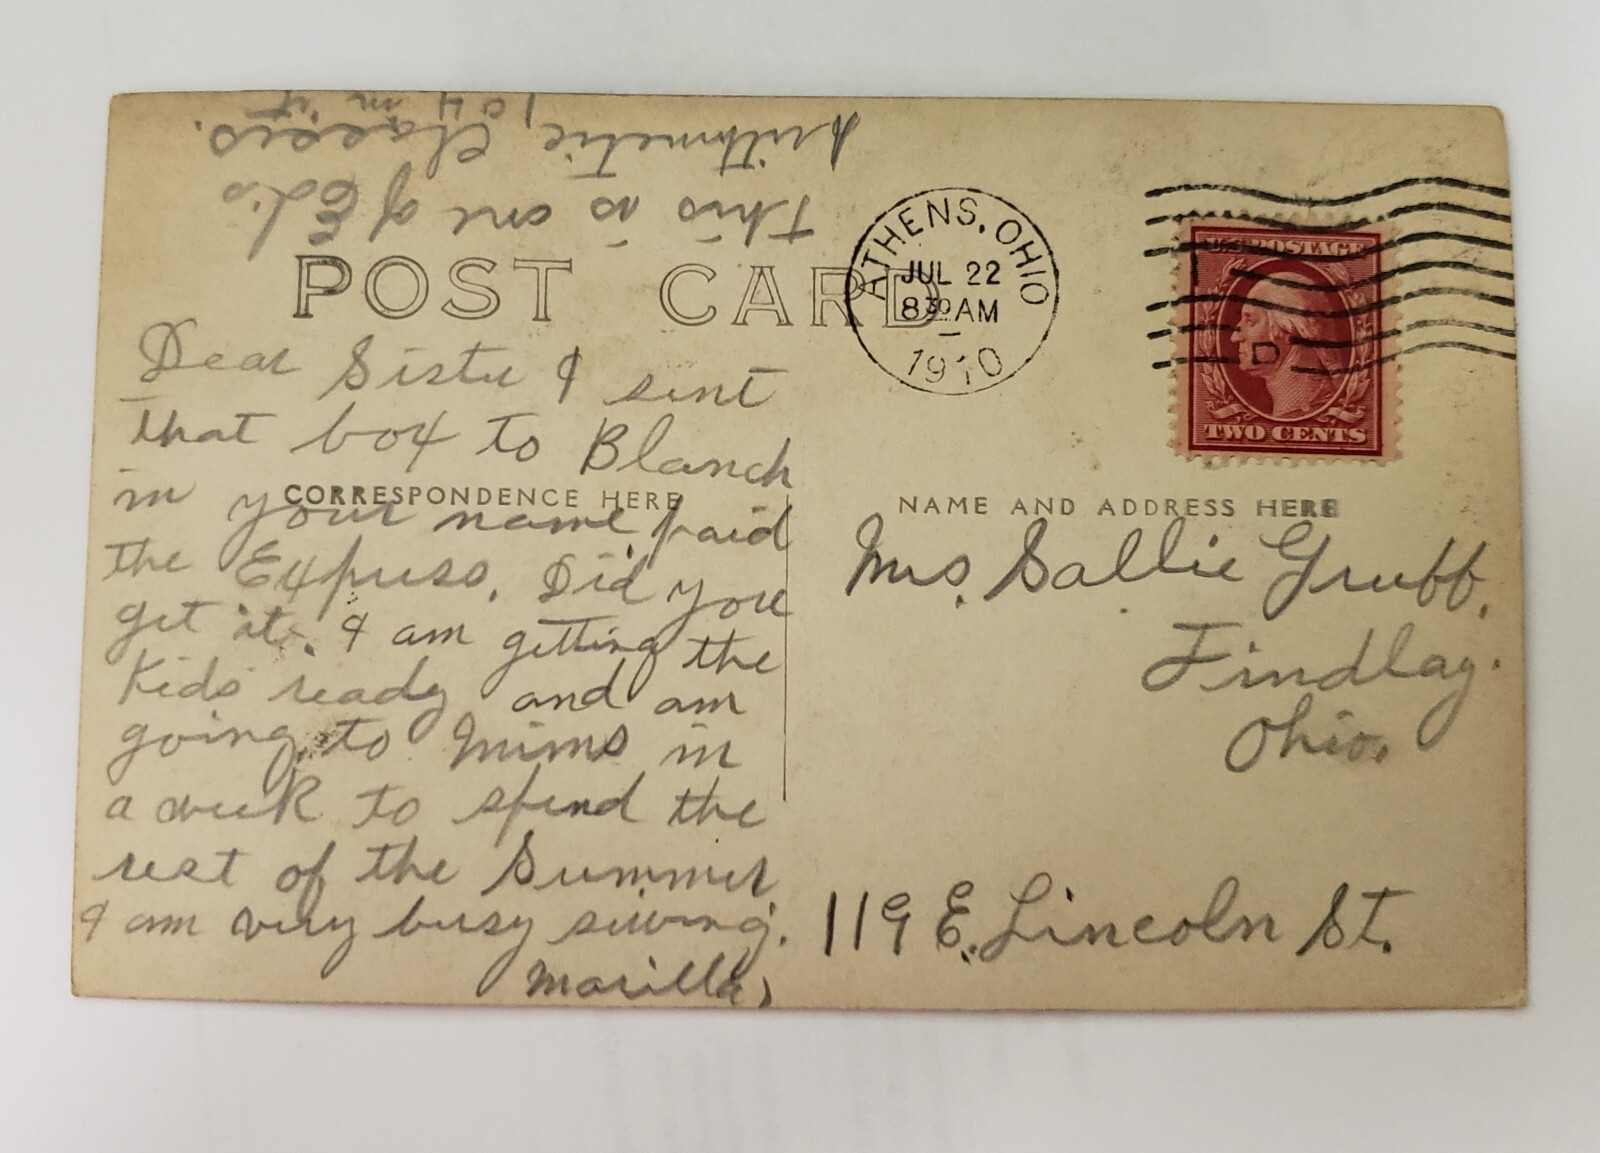 This is one of Ed's
Arithmetic Classes.
104 in it
POST CARD
ATHENS, OHIO
JUL 22
830 AM
1910
U.S. POSTAGE
D
TWO CENTS
Dear Sister I sent
that box to Blanch
CORRESPONDENCE HERE
in your name, paid
the Express. Did you
get it. I am getting the
Kids ready and am
going to Mims in
a week to spend the
rest of the Summer
I am very busy sewing.
Marilla,
NAME AND ADDRESS HERE
Mrs. Sallie Grubb,
Findlay.
Ohio.
119 E. Lincoln St.